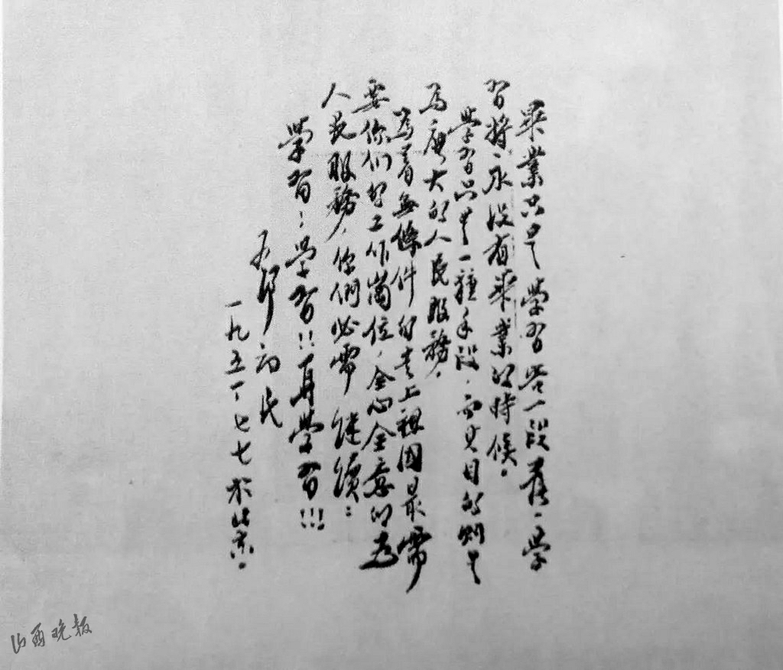 畢業只是學習告一段落,學
習將永没有畢業的時候。
學習只是一種手段,而其目的则是
為廣大的人民服務。
為着無條件的走上祖國最需
要你们的工作崗位,全心全意的为
人民服務,你們必需继續:
學習!學習!!再學習!!!
初民
一九五一、七、七於北京。
山西晚报